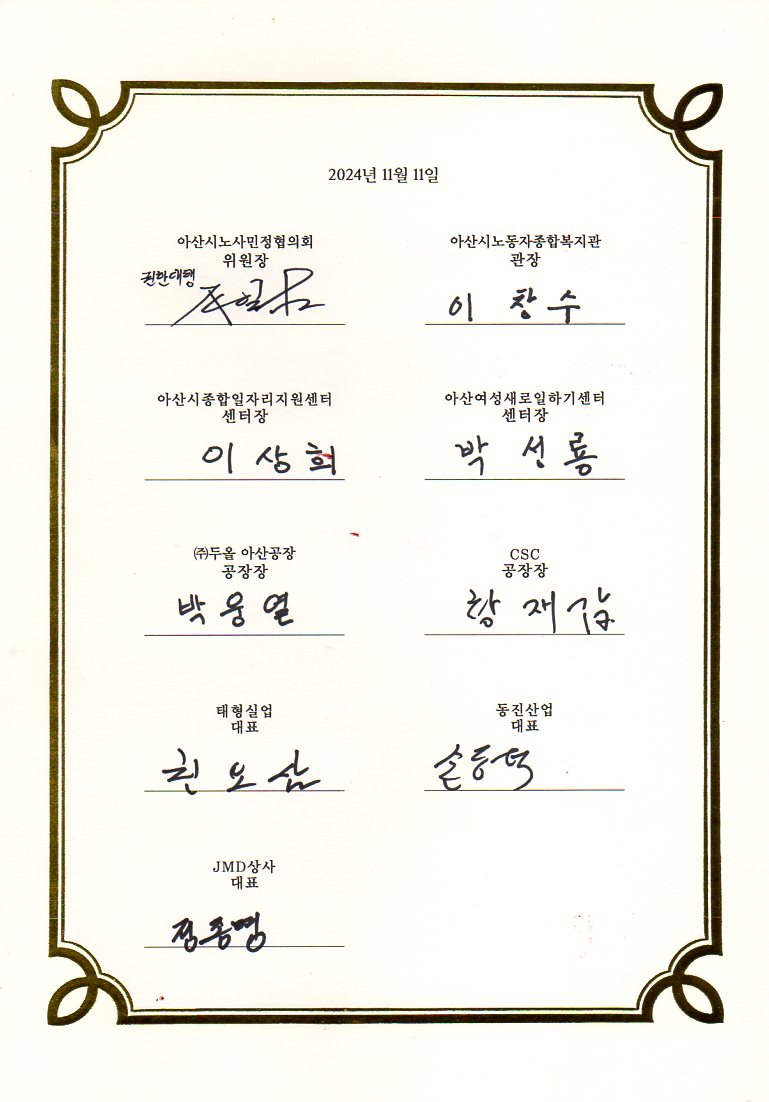 2024년 11월 11일
아산시노사민정협의회
위원장
권한대행
아산시노동자종합복지관
관장
이 창 수
아산시종합일자리지원센터
센터장
이 상 희
아산여성새로일하기센터
센터장
박 성 룡
㈜두올 아산공장
공장장
박 웅 열
CSC
공장장
황 재 갑
태형실업
대표
권 오 삼
동진산업
대표
손동덕
JMD상사
대표
정종명